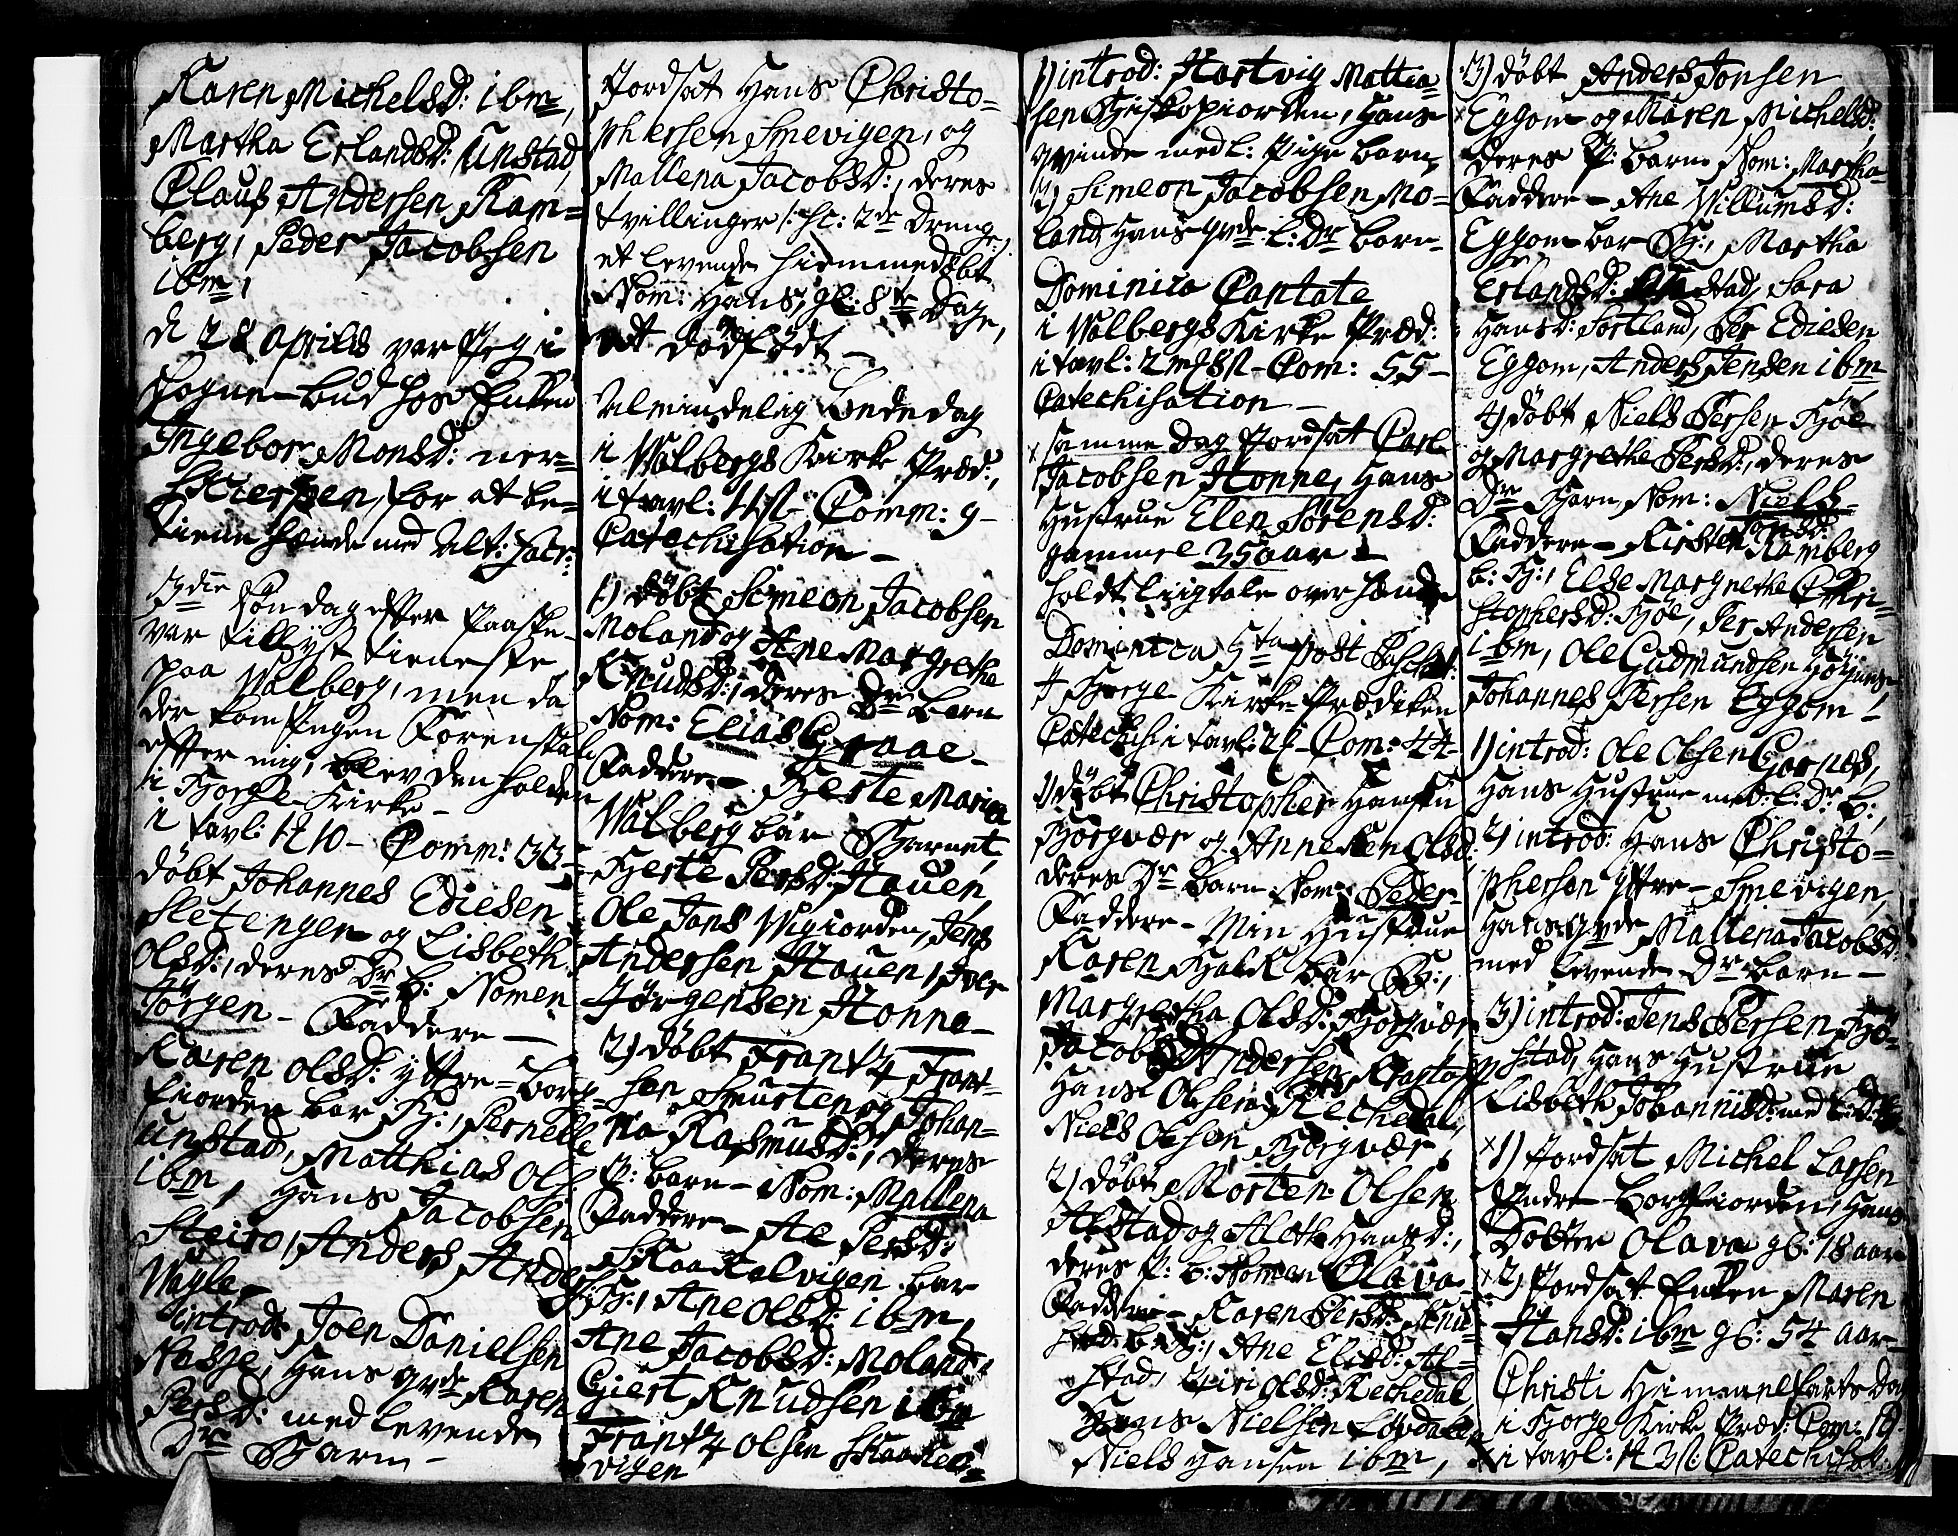 Karen Michelsd: ibm,
Martha Erlandsd: Unstad,
Claus Andersen Ram=
berg, Peder Jacobsen
ibm,
d 28 Aprilis var Jeg i
Sogne-bud hos Enken
Ingebor Monsd: ner=
for at be=
tiene hende med Alt: Sacr:
3die Søndag efter Paaske
var tillyst tieneste
paa Walberg, men da
der kom Ingen
efter mig, blev den holden
i Borge Kirke -
i tavl: Comm: 33-
døbt Johannes Ediesen
Sletengen og Lisbeth
Olsd:, deres Dr. b: Nomen
Jörgen - Faddere -
Karen Olsd: Yttre=Borg=
fiorden bar B:, Pernelle
Unstad, Matthias Ols
ibm, Hans Jacobsen
Steiro, Anders Anders
Vagle -
introd: Joen Danielsen
Hans qvde Karen
Persd: med levende
Dr. Barn -
Jordsat Hans Christo=
phersen Smevigen, og
Mallena Jacobsd:, deres
tvillinger /: sc: 2de Drenge :/
et levende hiemmedøbt
Nom: Hans, gl: 8te Dage,
et dødfødt -
Almindelig Bededag
i Walbergs Kirke Præd:,
i tavl: Comm: 9-
Catechisation -
1) døbt Simeon Jacobsen
Moland og Ane Margrethe
Knudsd:, deres Dr barn
Nom: Elias Graae -
Faddere - Berte Maria
Walberg bar Barnet,
Berte Persd: Hauen,
Ole Jons Wigiorden, Jens
Andersen Hauen, Iver
Jörgensen Honne -
2) døbt Frantz Frant=
sen Smurten og Johan=
na Rasmusd:, deres
P: barn - Nom: Mallena
Faddere - Ane Persd:
Skaakelvigen bar
B:, Ane Olsd: ibm,
Ane Jacobsd: Moland,
Giert Knudsen ibm
Frantz Olsen Skaakel=
vigen
1) introd: Hartvig Mattia=
sen Bispopiorden, Hans
qvinde med l: Pige barn,
2) Simeon Jacobsen Mo=
land, Hans qvde l: Dr barn-
Dominica Cantate
i Walbergs Kirke Præd:
i tavl: Com: 55-
Catechisation -
x samme Dag Jordsat Carl
Jacobsen Honne, Hans
Hustrue Elen Sörensd:
gammel 35 aar -
holdt liigtale over hende
Dominica 5ta post Pasch:
I Borge Kirke Prædiken
Catechis: i tavl: Com: 44-
1) døbt Christopher Hansen
Borgvær og Anneken Olsd:
deres Dr barn Nom: Peder-
Faddere - Min Hustrue
Karen Falck bar B:,
Margretha Olsd: Borgvær,
Jacob Andersen
Hans Olsen Rechedal,
Niels Olsen Borgvær,
2) døbt Morten Olsen
Alstad og Aleth Hansd:,
deres P: b: Nomen Olava-
Faddere - Karen Persd:
b: B:, Ane Elisd: Al=
stad, Siri Olsd: Rechedal
Hans Nielsen
Niels Hansen ibm,
3) døbt Anders Jonsen
x Eggom og Maren Michelsd:,
deres P: barn Nom: Martha-
Faddere - Ane Willumsd:
Eggom bar B:, Martha
Erlandsd: Unstad, Sara
Hansd: Sortland, Per Ediesen
Eggom, Anders Jensen ibm
4) døbt Niels Persen Bøe
og Margrethe Persd:, deres
Dr Barn, Nom: Niels-
Faddere - Kirsten Jonsd: Ramberg
b: B:, Else Margrethe Chri=
stophersd: Bøe, Per Andersen
ibm, Ole Gudmundsen
Johannes Persen Eggom -
1) introd: Ole Olsen
Hans Hustrue med l: Dr b:,
2) introd: Hans Christo=
phersen Yttre-Smevigen,
Hans qvde Mallena Jacobsd:
med levende Dr barn -
3) introd: Jens Persen Bø=
stad, Hans Hustrue
Lisbeth Johannisd: med l: Dr
x 1) Jordsat Michel Larsen
Indre-Borgfiorden, Hans
Dotter Olava gl: 18 aar
x 2) Jordsat Enken Maren
Hansd: ibm gl: 54 aar-
Christi Himmelfarts Dag
i Borge Kirke Præd: Com: 18
i tavl: Catechisat: